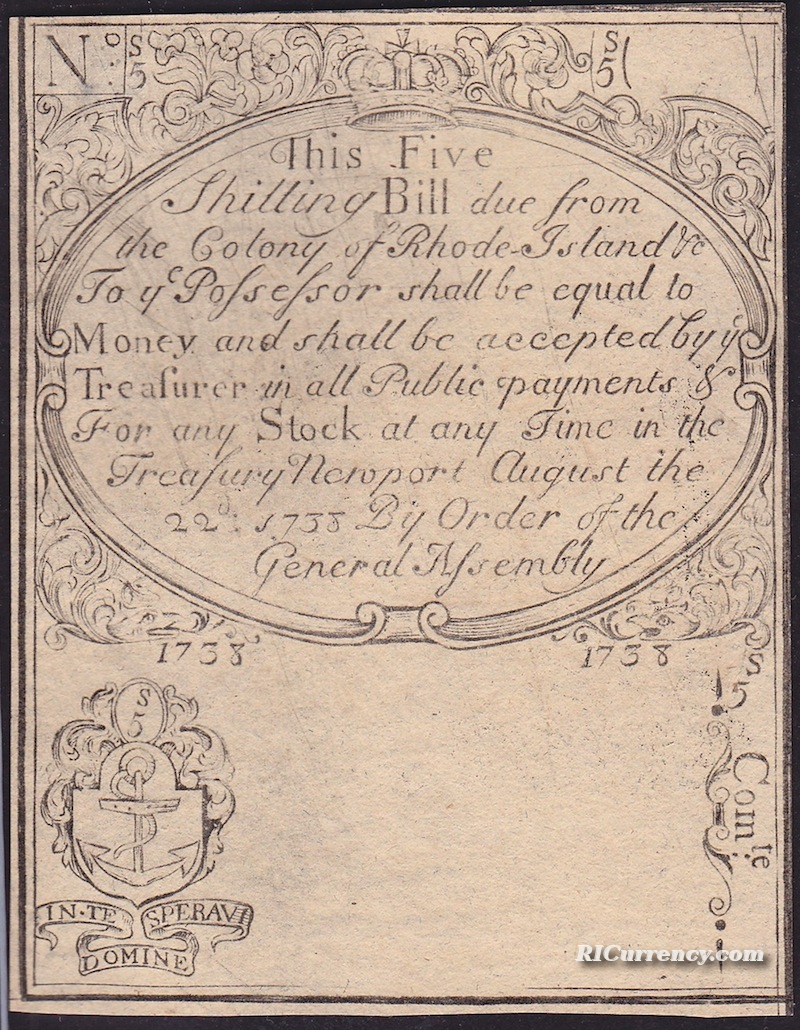 No
S
5
S
5
This Five
Shilling Bill due from
the Colony of Rhode-Island &c
To ye Poſseſsor shall be equal to
Money and shall be accepted by ye
Treaſurer in all Public payments &
For any Stock at any Time in the
Treaſury Newport August the
22d: 1738 By Order of the
General Aſsembly
1738
1738
S
5
IN·TE SPERAVI
DOMINE
S 5
Com:te
RICurrency.com